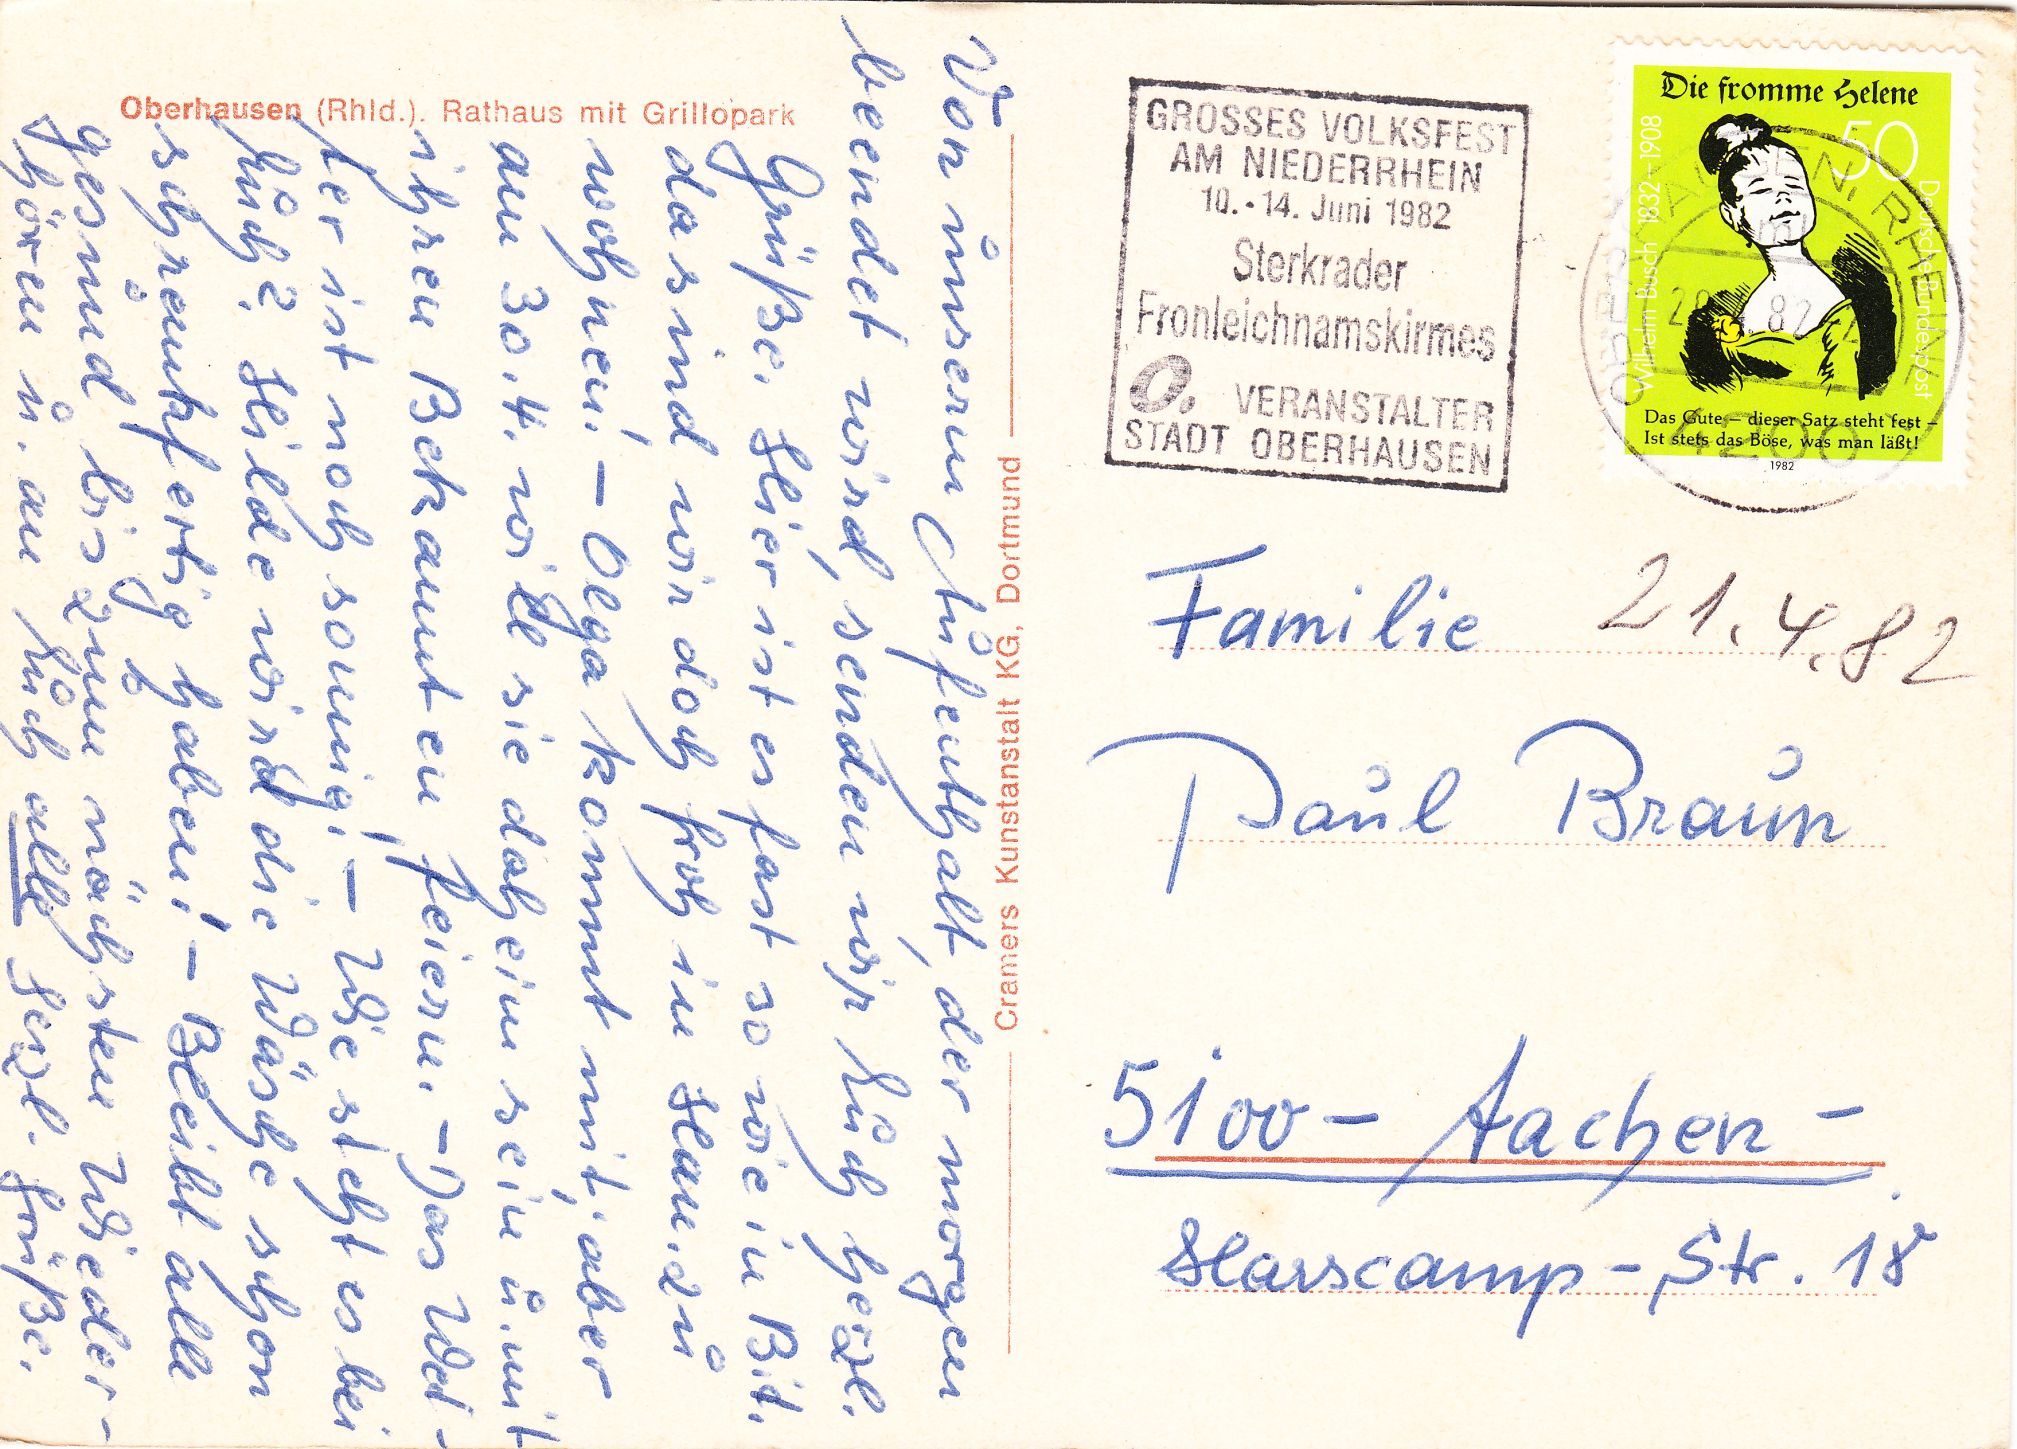 Oberhausen (Rhld.). Rathaus mit Grillopark
Von unserm Aufenthalt, der morgen
beendet wird, senden wir Euch herzl.
Grüße. Hier ist es fast so wie in Bit.
da sind wir doch froh in Ham. zu
wohnen! – Olga kommt mit, aber
am 30.4. will sie daheim sein u. mit
ihren Bekannten feiern. – Das Wet-
ter ist noch sonnig! – Wie steht es bei
Euch? Hilde wird die Wäsche schon
schrankfertig haben! – Bleibt alle
gesund bis zum nächsten Wieder-
hören u. an Euch alle herzl. Grüße.
Cramers Kunstanstalt KG, Dortmund
GROSSES VOLKSFEST
AM NIEDERRHEIN
10.-14. Juni 1982
Sterkrader
Fronleichnamskirmes
O. VERANSTALTER
STADT OBERHAUSEN
Die fromme Helene
50
Wilhelm Busch 1832–1908
Deutsche Bundespost
Das Gute – dieser Satz steht fest –
Ist stets das Böse, was man läßt!
1982
OBERHAUSEN, RHEINL
82
4200
Familie 21.4.82
Paul Braun
5100 – Aachen –
Harscamp-Str. 18